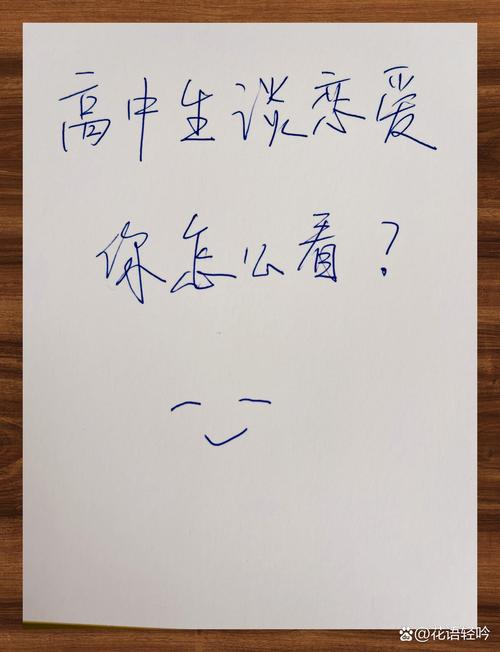 高中生谈恋爱
你怎么看？
@花语轻吟